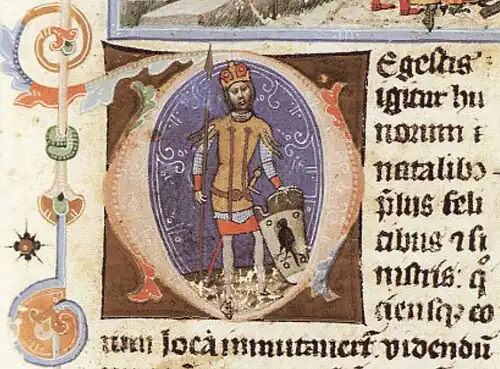 Egestis
igitur hu
norum ⁊
natalibꝰ
p̄lius feli
cibus ⁊ si
nistris · q̄
ciensqꝫ co
rum loca inmutauer̄t uidendū